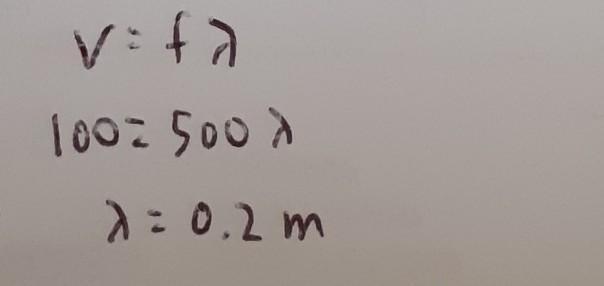 V = fλ
100 = 500 λ
λ = 0.2 m